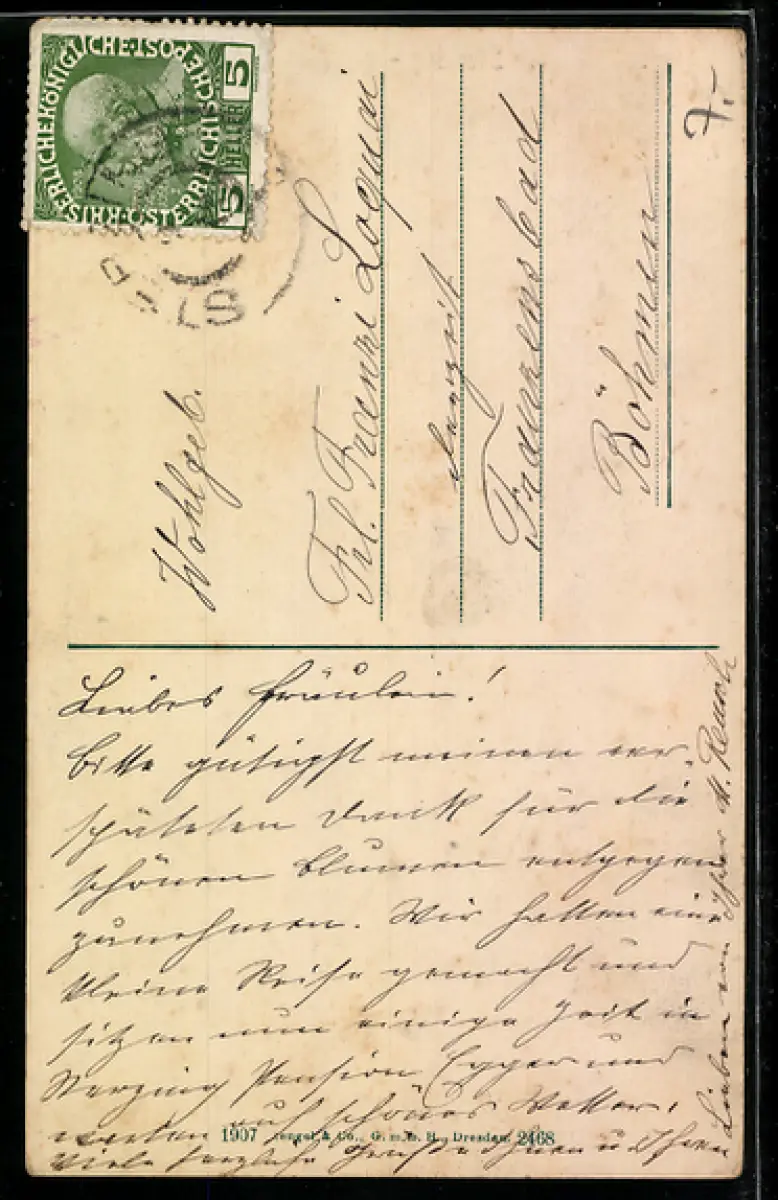 KAISERLICHEKÖNIGLICHE ÖSTERREICHISCHE POST
5 HELLER 5
7.-
Wohlgeb.
Frl. Franzi Loquai
derzeit
Franzensbad
Böhmen
Liebes Fräulein!
Bitte gütigst meinen ver-
späteten Dank für die
schönen Blumen entgegen
zunehmen. Wir hatten eine
kleine Reise gemacht und
sitzen nun einige Zeit in
Sterzing Pension Egger und
warten auf schönes Wetter.
Viele herzliche Grüße Ihnen u Ihren
Lieben von Ihrer M. Reusch
1907 Stengel & Co., G. m. b. H., Dresden. 2468